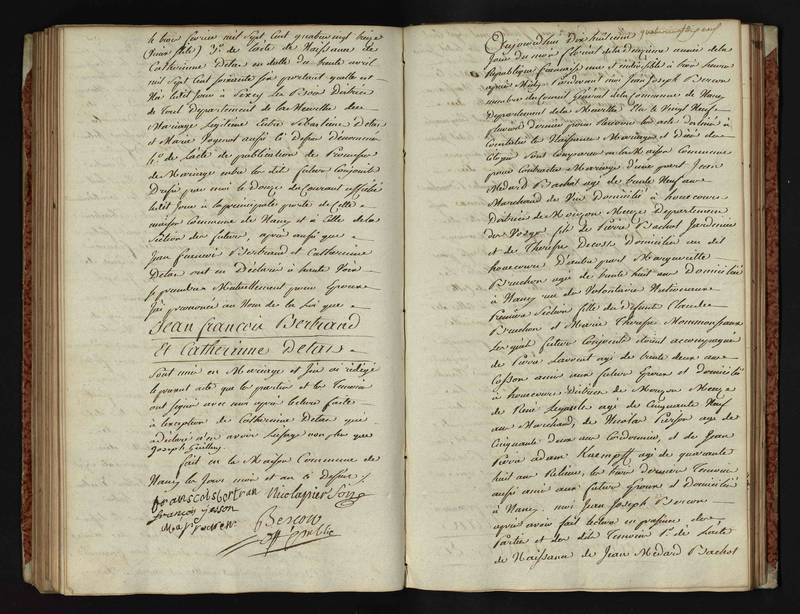 mil sept cent quatre vingt treize
(vieux stile) 3.º de l'acte de Naissance de
Catherinne Detar en datte du trente avril
mil sept cent soixante six portant qu'elle est
Née ledit jour à Sexey les Bois District
de Toul Département de la Meurthe du
Mariage Légitime entre Sébastien Detar
et Marie aussi ci dessus dénommé
4.º de l'acte de publication de Promesse
de Mariage entre les dits futurs conjoints
Dressé par moi le Douze du Courant affiché
ledit Jour à la principale porte de Cette
maison commune de Nancy et à celle de la
Section des futurs, après aussi que
Jean francois Bertrand et Catherinne
Detar ont eu Déclaré à haute Voix
se prendre Mutuellement pour Epoux
J'ai prononcé au Nom de la Loi que
Jean francois Bertrand
Et Catherinne Detar
Sont unis en Mariage et J'ai rédigé
le présent acte que les parties et les Témoins
ont signé avec moi après lecture faite
à l'exception de Catherinne Detar qui
a déclaré n'en avoir l'usage non plus que
Joseph
fait en la Maison Commune de
Nancy les Jour mois et an ci Dessus
francois bertran Nicolas pierson
françois
Bercon
off public
quatre vingt dix neuf
Aujourd'huy dix huitieme
Jour du mois floréal de la deuxième année de la
République française une et indivisible à trois heures
après Midy Pardevant moi Jean Joseph Bercon
membre du Conseil Général de la Commune de Nancy
Département de la Meurthe Elu le Vingt Neuf
Pluviose dernier pour Recevoir les actes destinés à
Constater les Naissances Mariages et Décès des
Citoyens Sont comparus en la Maison Commune
pour Contracter Mariage d'une part Jean
Médard Bachot agé de trente Neuf ans
Marchand de Vin Domicilié à honcourt
District de Mouzon Meuze Département
des Vosges fils de Pierre Bachot Jardinier
et de Therese Domiciliés au dit
honcourt d'autre part Margueritte
Bruchon agée de trente huit ans Domiciliée
à Nancy rue des Volontaires Nationaux
Première Section fille de défunt Claude
Bruchon et Marie Therese
Lesquels futurs Conjoints étoient accompagnés
de Pierre Laurent agé de trente deux ans
Cosson ami aux futurs Epoux et domicilié
à honcourt District de Mouzon Meuze
de René agé de Cinquante Neuf
ans Marchand, de Nicolas Pierson agé de
Cinquante deux ans Cordonnier, et de Jean
Pierre adam agé de quarante
huit ans Relieur, les trois derniers Témoins
aussi amis aux futurs Epoux et domiciliés
à Nancy. moi Jean Joseph Bercon
après avoir fait lecture en présence des
Parties et des dits Témoins 1.º de l'acte
de Naissance de Jean Médard Bachot